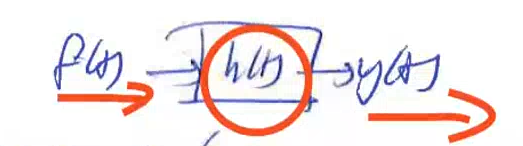 f(t) → h(t) → y(t)